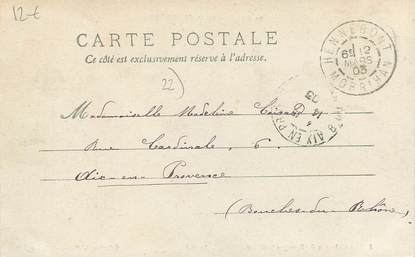 12 €
CARTE POSTALE
Ce côté est exclusivement réservé à l'adresse.
HENNEBONT
12
MARS
03
MORBIHAN
22
AIX EN PR
14
03
Mademoiselle Madeleine
Rue Cardinale, 6.
Aix-en-Provence
(Bouches-du-Rhône)